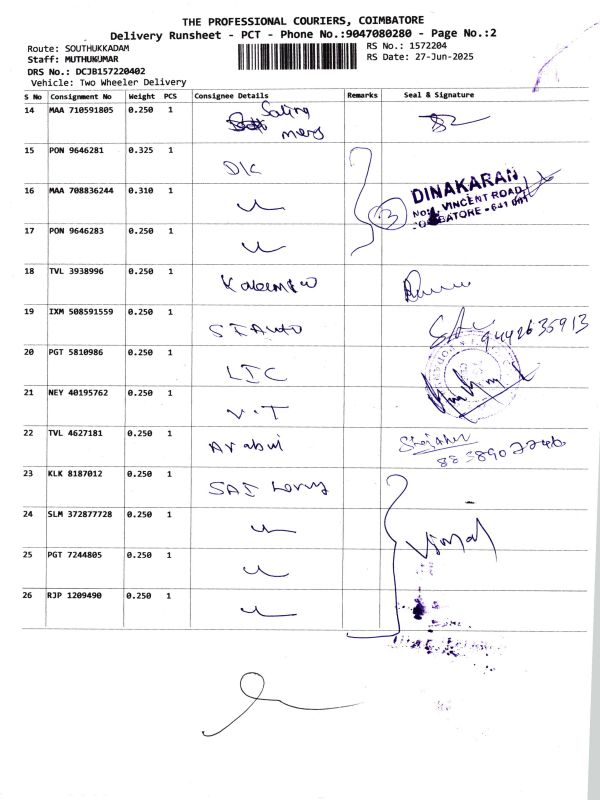 THE PROFESSIONAL COURIERS, COIMBATORE
Delivery Runsheet - PCT - Phone No.:9047080280 - Page No.:2
Route: SOUTHUKKADAM
RS No.: 1572204
Staff: MUTHUKUMAR
RS Date: 27-Jun-2025
DRS No.: DCJB157220402
Vehicle: Two Wheeler Delivery
S No Consignment No Weight PCS Consignee Details Remarks Seal & Signature
14 MAA 710591805 0.250 1
15 PON 9646281 0.325 1 D/C
16 MAA 708836244 0.310 1
DINAKARAN
VINCENT ROAD
17 PON 9646283 0.250 1
18 TVL 3938996 0.250 1
19 IXM 508591559 0.250 1 SI Auto 9442635913
20 PGT 5810986 0.250 1 LIC
21 NEY 40195762 0.250 1 V.T
22 TVL 4627181 0.250 1
23 KLK 8187012 0.250 1 SAI
24 SLM 372877728 0.250 1
Vimal
25 PGT 7244805 0.250 1
26 RJP 1209490 0.250 1